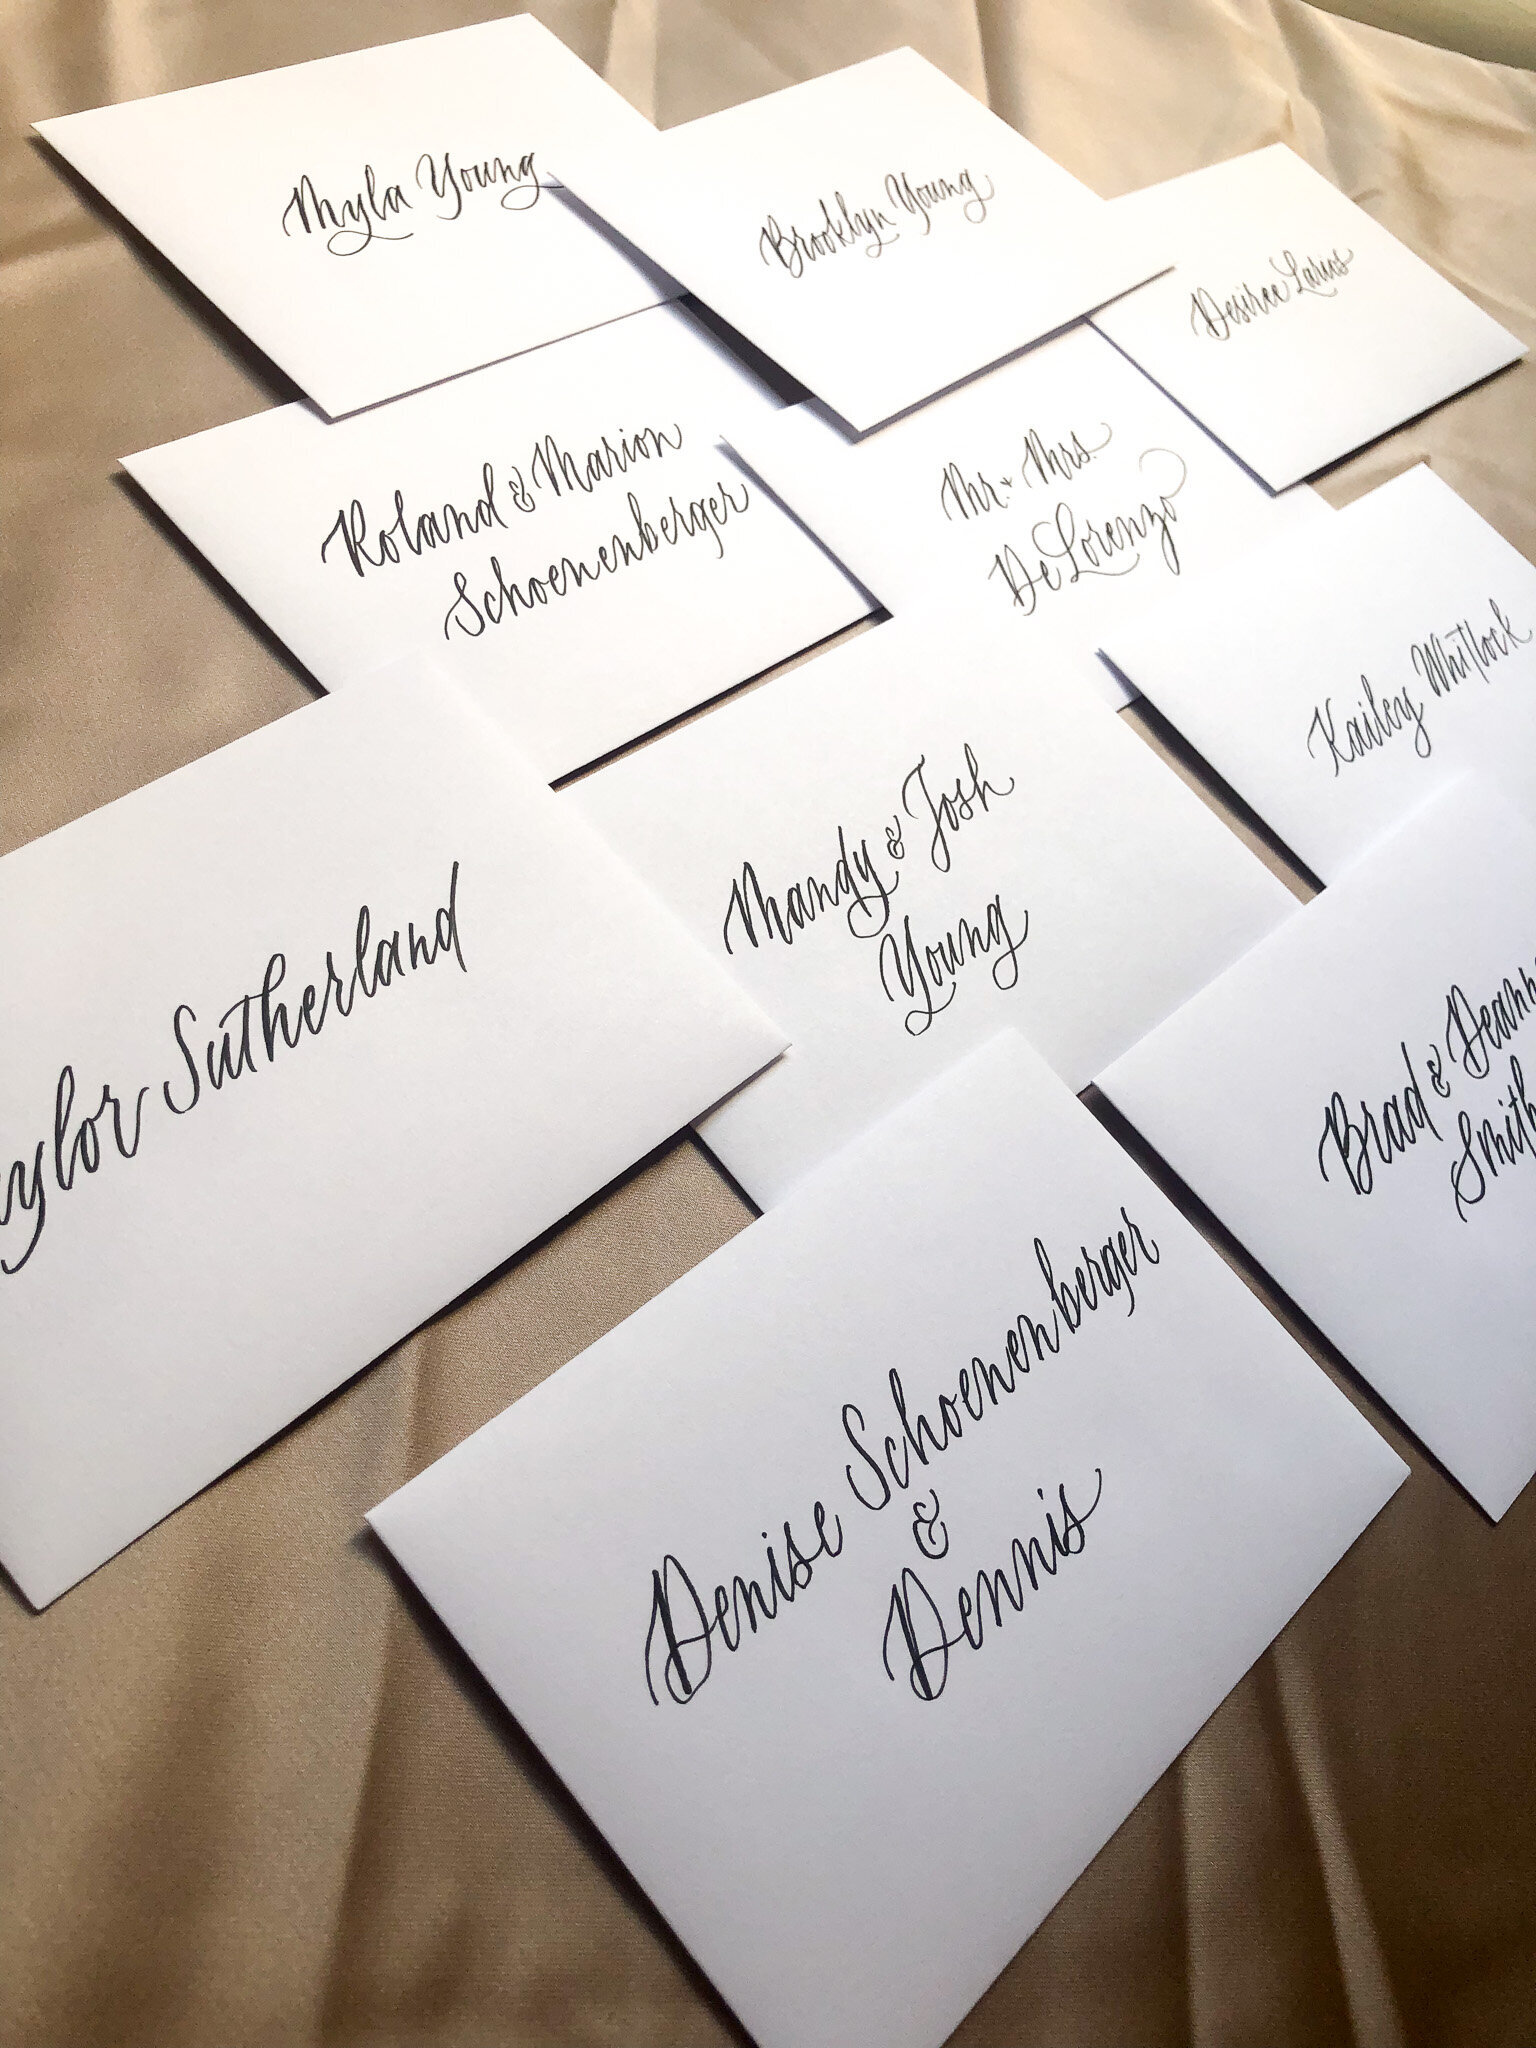 Myla Young
Brooklyn Young
Desiree Larios
Roland & Marion
Schoenenberger
Mr. + Mrs.
De Lorenzo
Kailey Whitlock
Mandy & Josh
Young
ylor Sutherland
Brad & Deann
Smith
Denise Schoenenberger
&
Dennis